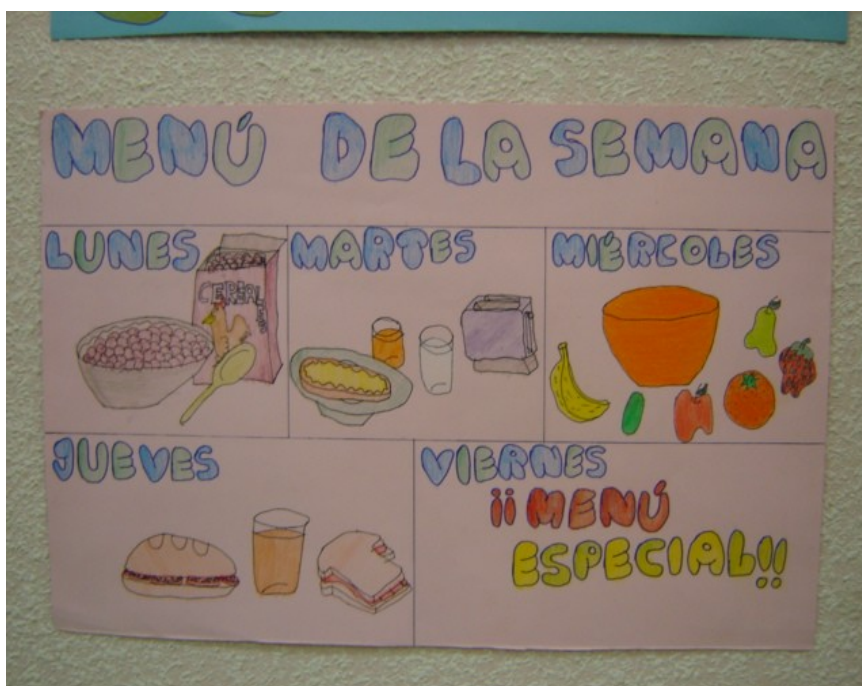 MENÚ DE LA SEMANA
LUNES
CEREAL
MARTES
MIÉRCOLES
JUEVES
VIERNES
¡¡MENÚ
ESPECIAL!!